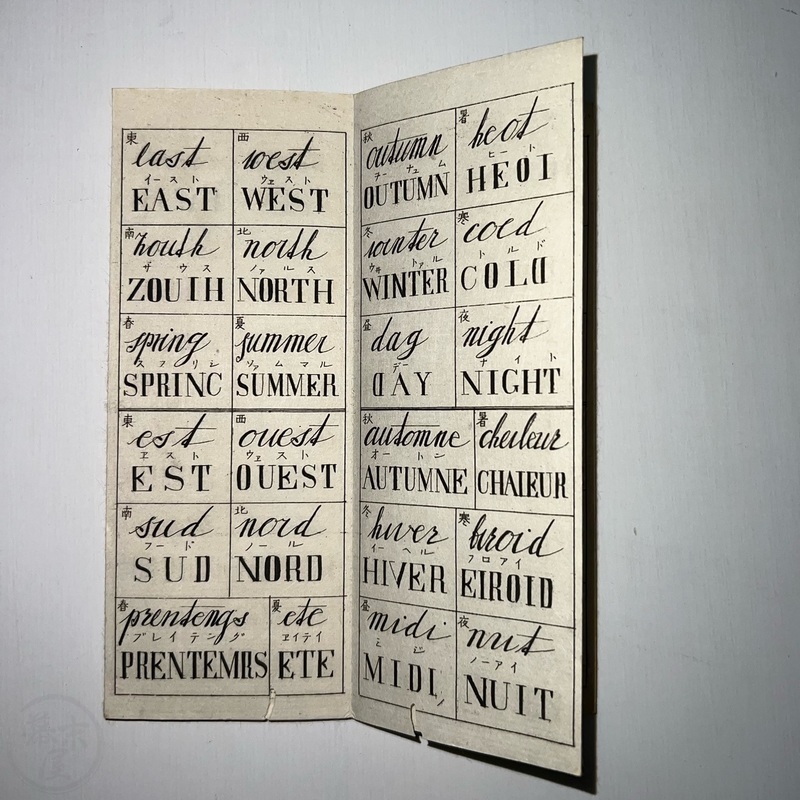 東
east
イースト
EAST
西
west
ウェスト
WEST
南
houth
ザウス
ZOUIH
北
north
ノァルス
NORTH
春
spring
スプリン
SPRINC
夏
summer
ソァムマル
SUMMER
東
est
エスト
EST
西
ouest
ウェスト
OUEST
南
sud
フード
SUD
北
nord
ノール
NORD
春
prentengs
プレイテング
PRENTEMRS
夏
ete
エイテイ
ETE
秋
outumn
チーチュム
OUTUMN
暑
heot
ヒート
HEOI
冬
winter
ウヰトァル
WINTER
寒
coed
トルド
COLD
昼
dag
デー
DAY
夜
night
ナイト
NIGHT
秋
automne
オートン
AUTUMNE
暑
cheuleur
CHAIEUR
冬
hiver
イーヘル
HIVER
寒
froid
フロアイ
EIROID
昼
midi
ミジ
MIDI,
夜
nuit
ノーアイ
NUIT